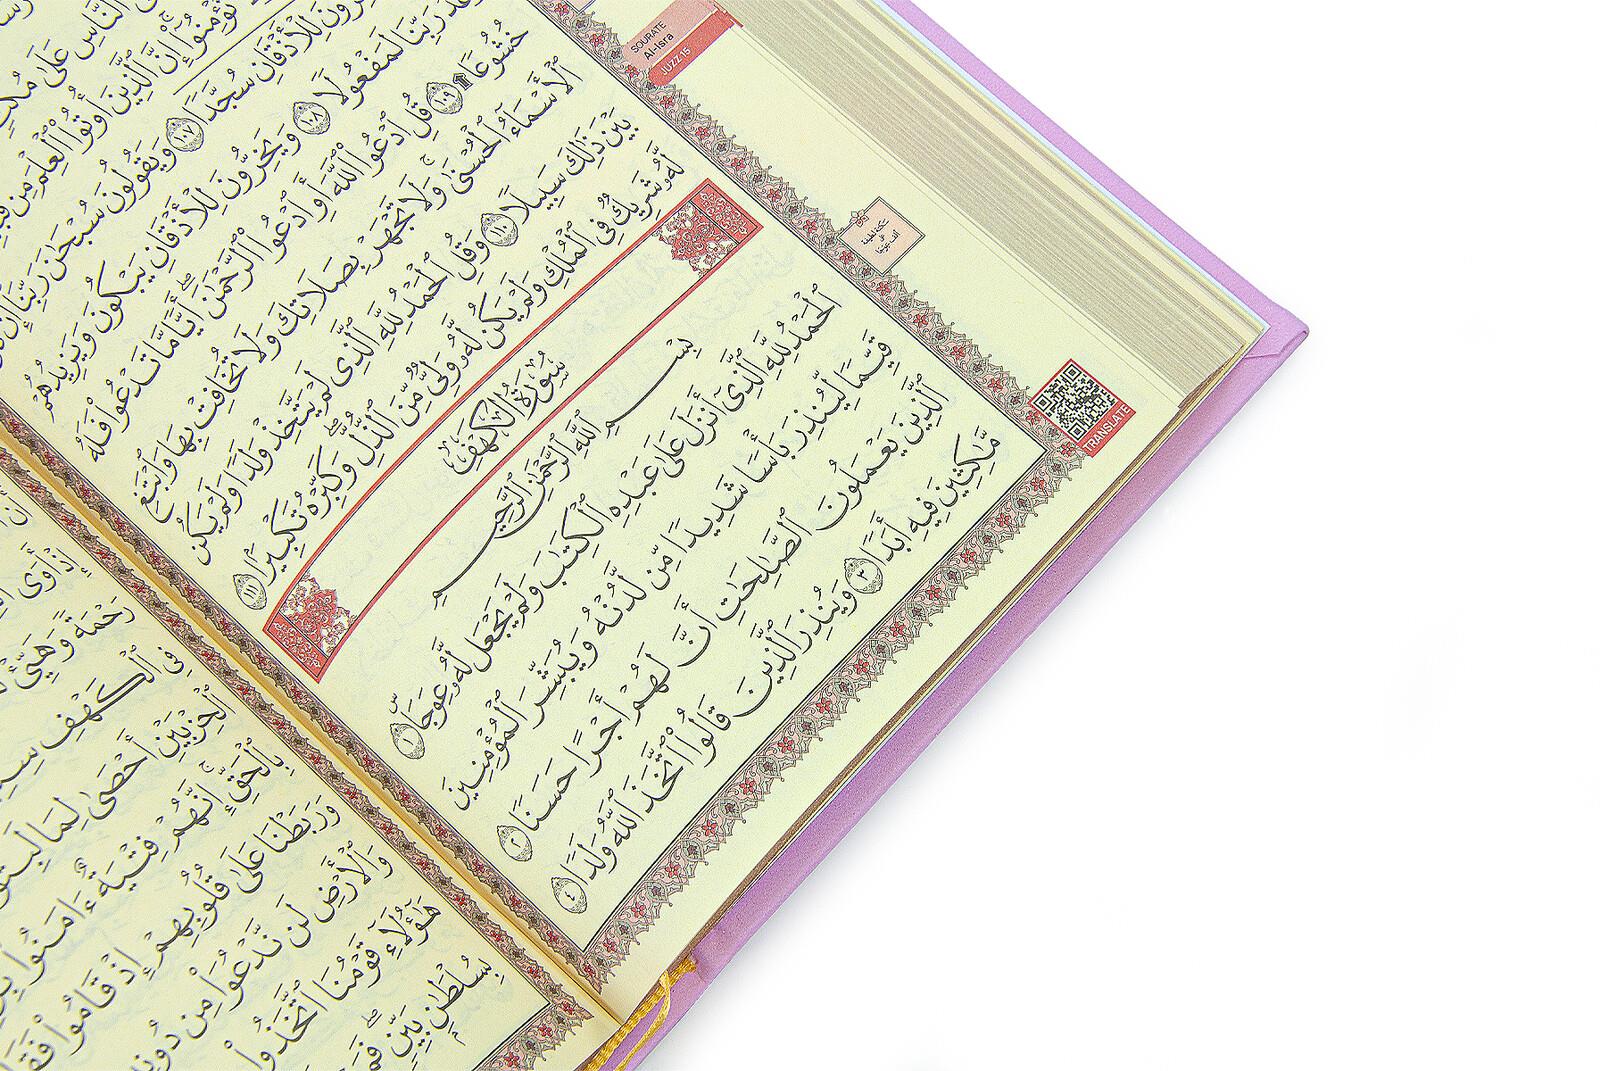 SOURATE
Al-Isra
JUZZ 15
عَلَى النَّاسِ عَلَىٰ مُكْثٍ
تُؤْمِنُوٓا۟ ۚ إِنَّ ٱلَّذِينَ أُوتُوا۟ ٱلْعِلْمَ مِن
يَخِرُّونَ لِلْأَذْقَانِ سُجَّدًا ١٠٧ وَيَقُولُونَ سُبْحَٰنَ رَبِّنَآ إِن
وَعْدُ رَبِّنَا لَمَفْعُولًا ١٠٨ وَيَخِرُّونَ لِلْأَذْقَانِ يَبْكُونَ وَيَزِيدُهُمْ
خُشُوعًا ۩ ١٠٩ قُلِ ٱدْعُوا۟ ٱللَّهَ أَوِ ٱدْعُوا۟ ٱلرَّحْمَٰنَ ۖ أَيًّا مَّا تَدْعُوا۟ فَلَهُ
ٱلْأَسْمَآءُ ٱلْحُسْنَىٰ ۚ وَلَا تَجْهَرْ بِصَلَاتِكَ وَلَا تُخَافِتْ بِهَا وَٱبْتَغِ
بَيْنَ ذَٰلِكَ سَبِيلًا ١١٠ وَقُلِ ٱلْحَمْدُ لِلَّهِ ٱلَّذِى لَمْ يَتَّخِذْ وَلَدًا وَلَمْ يَكُن
لَّهُۥ شَرِيكٌ فِى ٱلْمُلْكِ وَلَمْ يَكُن لَّهُۥ وَلِىٌّ مِّنَ ٱلذُّلِّ ۖ وَكَبِّرْهُ تَكْبِيرًۢا ١١١
سُورَةُ الكَهْفِ
بِسْمِ ٱللَّهِ ٱلرَّحْمَٰنِ ٱلرَّحِيمِ
ٱلْحَمْدُ لِلَّهِ ٱلَّذِىٓ أَنزَلَ عَلَىٰ عَبْدِهِ ٱلْكِتَٰبَ وَلَمْ يَجْعَل لَّهُۥ عِوَجَا ۜ ١
قَيِّمًا لِّيُنذِرَ بَأْسًا شَدِيدًا مِّن لَّدُنْهُ وَيُبَشِّرَ ٱلْمُؤْمِنِينَ
ٱلَّذِينَ يَعْمَلُونَ ٱلصَّٰلِحَٰتِ أَنَّ لَهُمْ أَجْرًا حَسَنًا ٢
مَّٰكِثِينَ فِيهِ أَبَدًا ٣ وَيُنذِرَ ٱلَّذِينَ قَالُوا۟ ٱتَّخَذَ ٱللَّهُ وَلَدًا ٤
سكتة لطيفة
على
ألف عوجا
TRANSLATE
إِذْ أَوَى
رَحْمَةً وَهَيِّئْ
فِى ٱلْكَهْفِ
ٱلْحِزْبَيْنِ أَحْصَىٰ لِمَا لَبِثُوٓا۟
بِٱلْحَقِّ ۚ إِنَّهُمْ فِتْيَةٌ ءَامَنُوا۟
وَرَبَطْنَا عَلَىٰ قُلُوبِهِمْ إِذْ قَامُوا۟
وَٱلْأَرْضِ لَن نَّدْعُوَا۟ مِن دُونِهِ
هَٰٓؤُلَآءِ قَوْمُنَا ٱتَّخَذُوا۟
بِسُلْطَٰنٍۭ بَيِّنٍ ۖ فَمَ